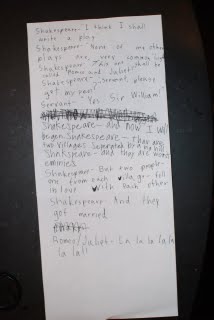 Shakespeare- I think I shall
write a play
Shakespear- None of my other
plays are very
Shakespear- This one shall be
called Romeo and Juliet
Shakespeare- Servant please
get my pen!
Servant- Yes Sir William!
Shakespeare- and now I will
began. Shakespeare- Thar are
two Villages Seperated by a
Shakspeare- and they are
emmies
Shakespear- But two people-
one from each village- fell
in love With Each other
Shakespear- And they
got married
Romeo/Juliet- La la la la la
la la!!